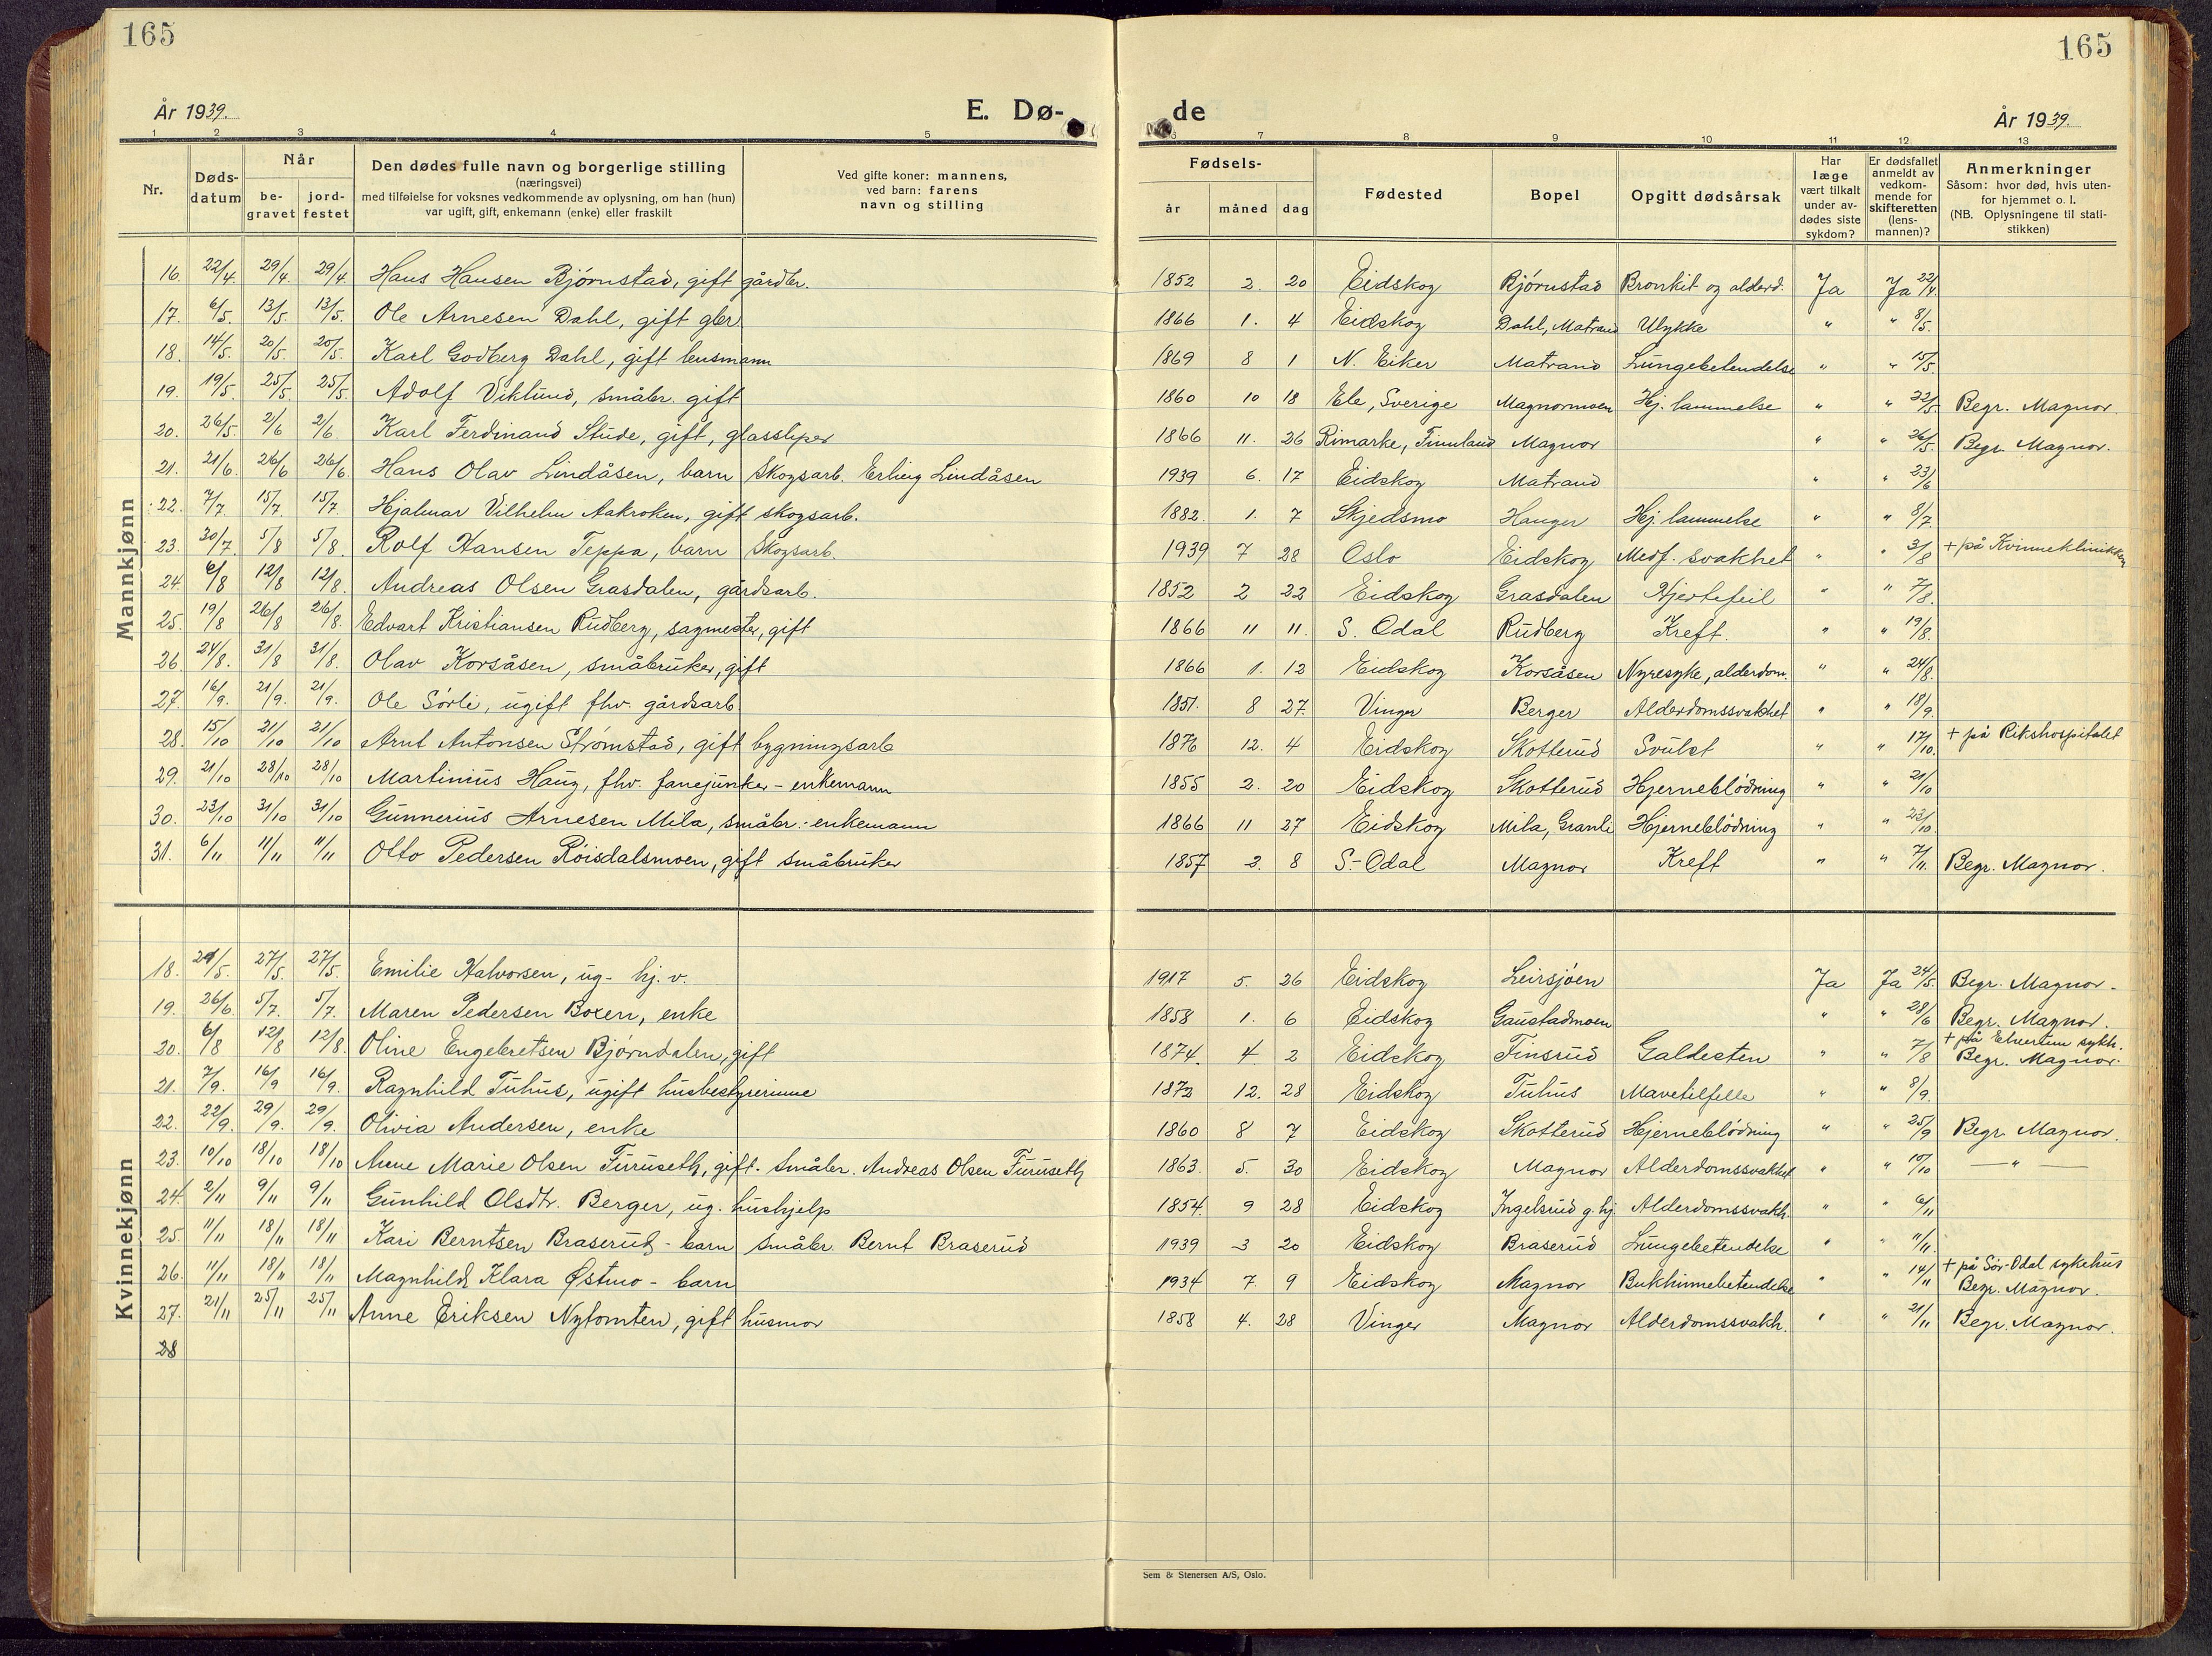 165
165
År 1939.
E. Dø-
de
År 1939.
1 2 3 4 5
6 7 8 9 10 11 12 13
Nr.
Døds-
datum
Når
be-
gravet
jord-
festet
Den dødes fulle navn og borgerlige stilling
(næringsvei)
med tilføielse for voksnes vedkommende av oplysning, om han (hun)
var ugift, gift, enkemann (enke) eller fraskilt
Ved gifte koner: mannens,
ved barn: farens
navn og stilling
Fødsels-
år måned dag
Fødested
Bopel
Opgitt dødsårsak
Har
læge
vært tilkalt
under av-
dødes siste
sykdom?
Er dødsfallet
anmeldt av
vedkom-
mende for
skifteretten
(lens-
mannen)?
Anmerkninger
Såsom: hvor død, hvis uten-
for hjemmet o. l.
(NB. Oplysningene til stati-
stikken)
Mannkjønn
16. 22/4 29/4 29/4 Hans Hansen Bjørnstad, gift gårdbr. 1852 2. 20 Eidskog Bjørnstad Bronkit og alderd. Ja Ja 22/4
17. 6/5. 13/5. 13/5. Ole Arnesen Dahl, gift gbr. 1866 1. 4 Eidskog Dahl, Matrand Ulykke " " 8/5.
18. 14/5. 20/5. 20/5. Karl Godberg Dahl, gift lensmann 1869 8 1 N. Eiker Matrand Lungebetendelse " " 15/5.
19. 19/5. 25/5. 25/5. Adolf Viklund, småbr. gift 1860 10 18 Ele, Sverige Magnormoen Hj. lammelse " " 22/5 Begr. Magnor.
20. 26/5. 2/6 2/6 Karl Ferdinand Stude, gift, glassliper 1866 11. 26 Rimarke, Finnland Magnor " " 26/5. Begr. Magnor.
21. 21/6. 26/6 26/6. Hans Olav Lindåsen, barn Skogsarb. Erling Lindåsen 1939 6. 17 Eidskog Matrand " " 23/6
22. 7/7 15/7. 15/7. Hjalmar Vilhelm Aakroken, gift skogsarb. 1882. 1. 7 Skjedsmo Hanger Hj. lammelse " " 8/7.
23. 30/7. 5/8 5/8. Rolf Hansen Teppa, barn Skogsarb. 1939 7 28 Oslo Eidskog Medf. svakhet " " 3/8 + på Kvinneklinikken
24. 6/8 12/8 12/8. Andreas Olsen Grasdalen, gårdsarb. 1852 2 22 Eidskog Grasdalen Hjertefeil " " 7/8.
25. 19/8 26/8 26/8. Edvart Kristiansen Rudberg, sagmester, gift 1866 11 11. S. Odal Rudberg Kreft. " " 19/8.
26. 24/8. 31/8 31/8. Olav Korsåsen, småbruker, gift 1866 1. 12 Eidskog Korsåsen Nyresyke, alderdom. " " 24/8.
27. 16/9. 21/9. 21/9. Ole Sørli, ugift fhv. gårdsarb. 1851. 8 27. Vinger Berger Alderdomssvakhet " " 18/9.
28. 15/10 21/10 21/10 Arnt Antonsen Strømstad, gift bygningsarb 1876 12. 4 Eidskog Skotterud Svulst " " 17/10. + på Rikshospitalet
29. 21/10 28/10 28/10 Martinius Haug, fhv. fanejunker - enkemann 1855 2. 20 Eidskog Skotterud Hjerneblødning " " 21/10
30. 23/10 31/10 31/10 Gunnerius Arnesen Mila, småbr. - enkemann 1866 11 27 Eidskog Mila, Granli Hjerneblødning " " 23/10.
31. 6/11 11/11 11/11 Otto Pedersen Røisdalsmoen, gift småbruker 1857 2. 8 S-Odal Magnor Kreft " " 7/11. Begr. Magnor.
Kvinnekjønn
18. 24/5. 27/5. 27/5. Emilie Halvorsen, ug- hj. v. 1917 5. 26 Eidskog Leirsjøen Ja Ja 24/5 Begr. Magnor-
19. 26/6 5/7. 5/7. Maren Pedersen Boxen, enke 1858 1. 6 Eidskog Gaustadmoen " " 28/6 Begr. Magnor.
20. 6/8 12/8 12/8. Oline Engebretsen Bjørndalen, gift 1874. 4. 2 Eidskog Finsrud Galdesten " " 7/8 + på Elverum sykh. Begr. Magnor.
21. 7/9. 16/9 16/9. Ragnhild Tuhus, ugift husbestyrerinne 1872 12. 28 Eidskog Tuhus Mavetilfelle " " 8/9.
22. 22/9. 29/9. 29/9. Olivia Andersen, enke 1860 8 7 Eidskog Skotterud Hjerneblødning " " 25/9 Begr. Magnor.
23. 10/10 18/10 18/10 Anne Marie Olsen Furuseth, gift. Småbr. Andreas Olsen Furuseth 1863. 5. 30 Eidskog Magnor Alderdomssvakhet " " 10/10 — " —
24. 2/11 9/11 9/11 Gunhild Olsdtr. Berger, ug. hushjelp 1854. 9 28 Eidskog Ingelsrud g. hj. Alderdomssvakh. " " 6/11
25. 11/11 18/11 18/11 Kari Berntsen Braserud - barn Småbr. Bernt Braserud 1939 3 20 Eidskog Braserud Lungebetendelse " " 11/11.
26. 11/11 18/11 18/11 Magnhild Klara Østmo - barn 1934 7. 9 Eidskog Magnor Bukhinnebetendelse " " 14/11 + på Sør-Odal sykehus Begr. Magnor.
27. 21/11 25/11 25/11 Anne Eriksen Nytomten, gift husmor 1858 4. 28 Vinger Magnor Alderdomssvakh. " " 21/11 Begr. Magnor.
28
Sem & Stenersen A/S, Oslo.